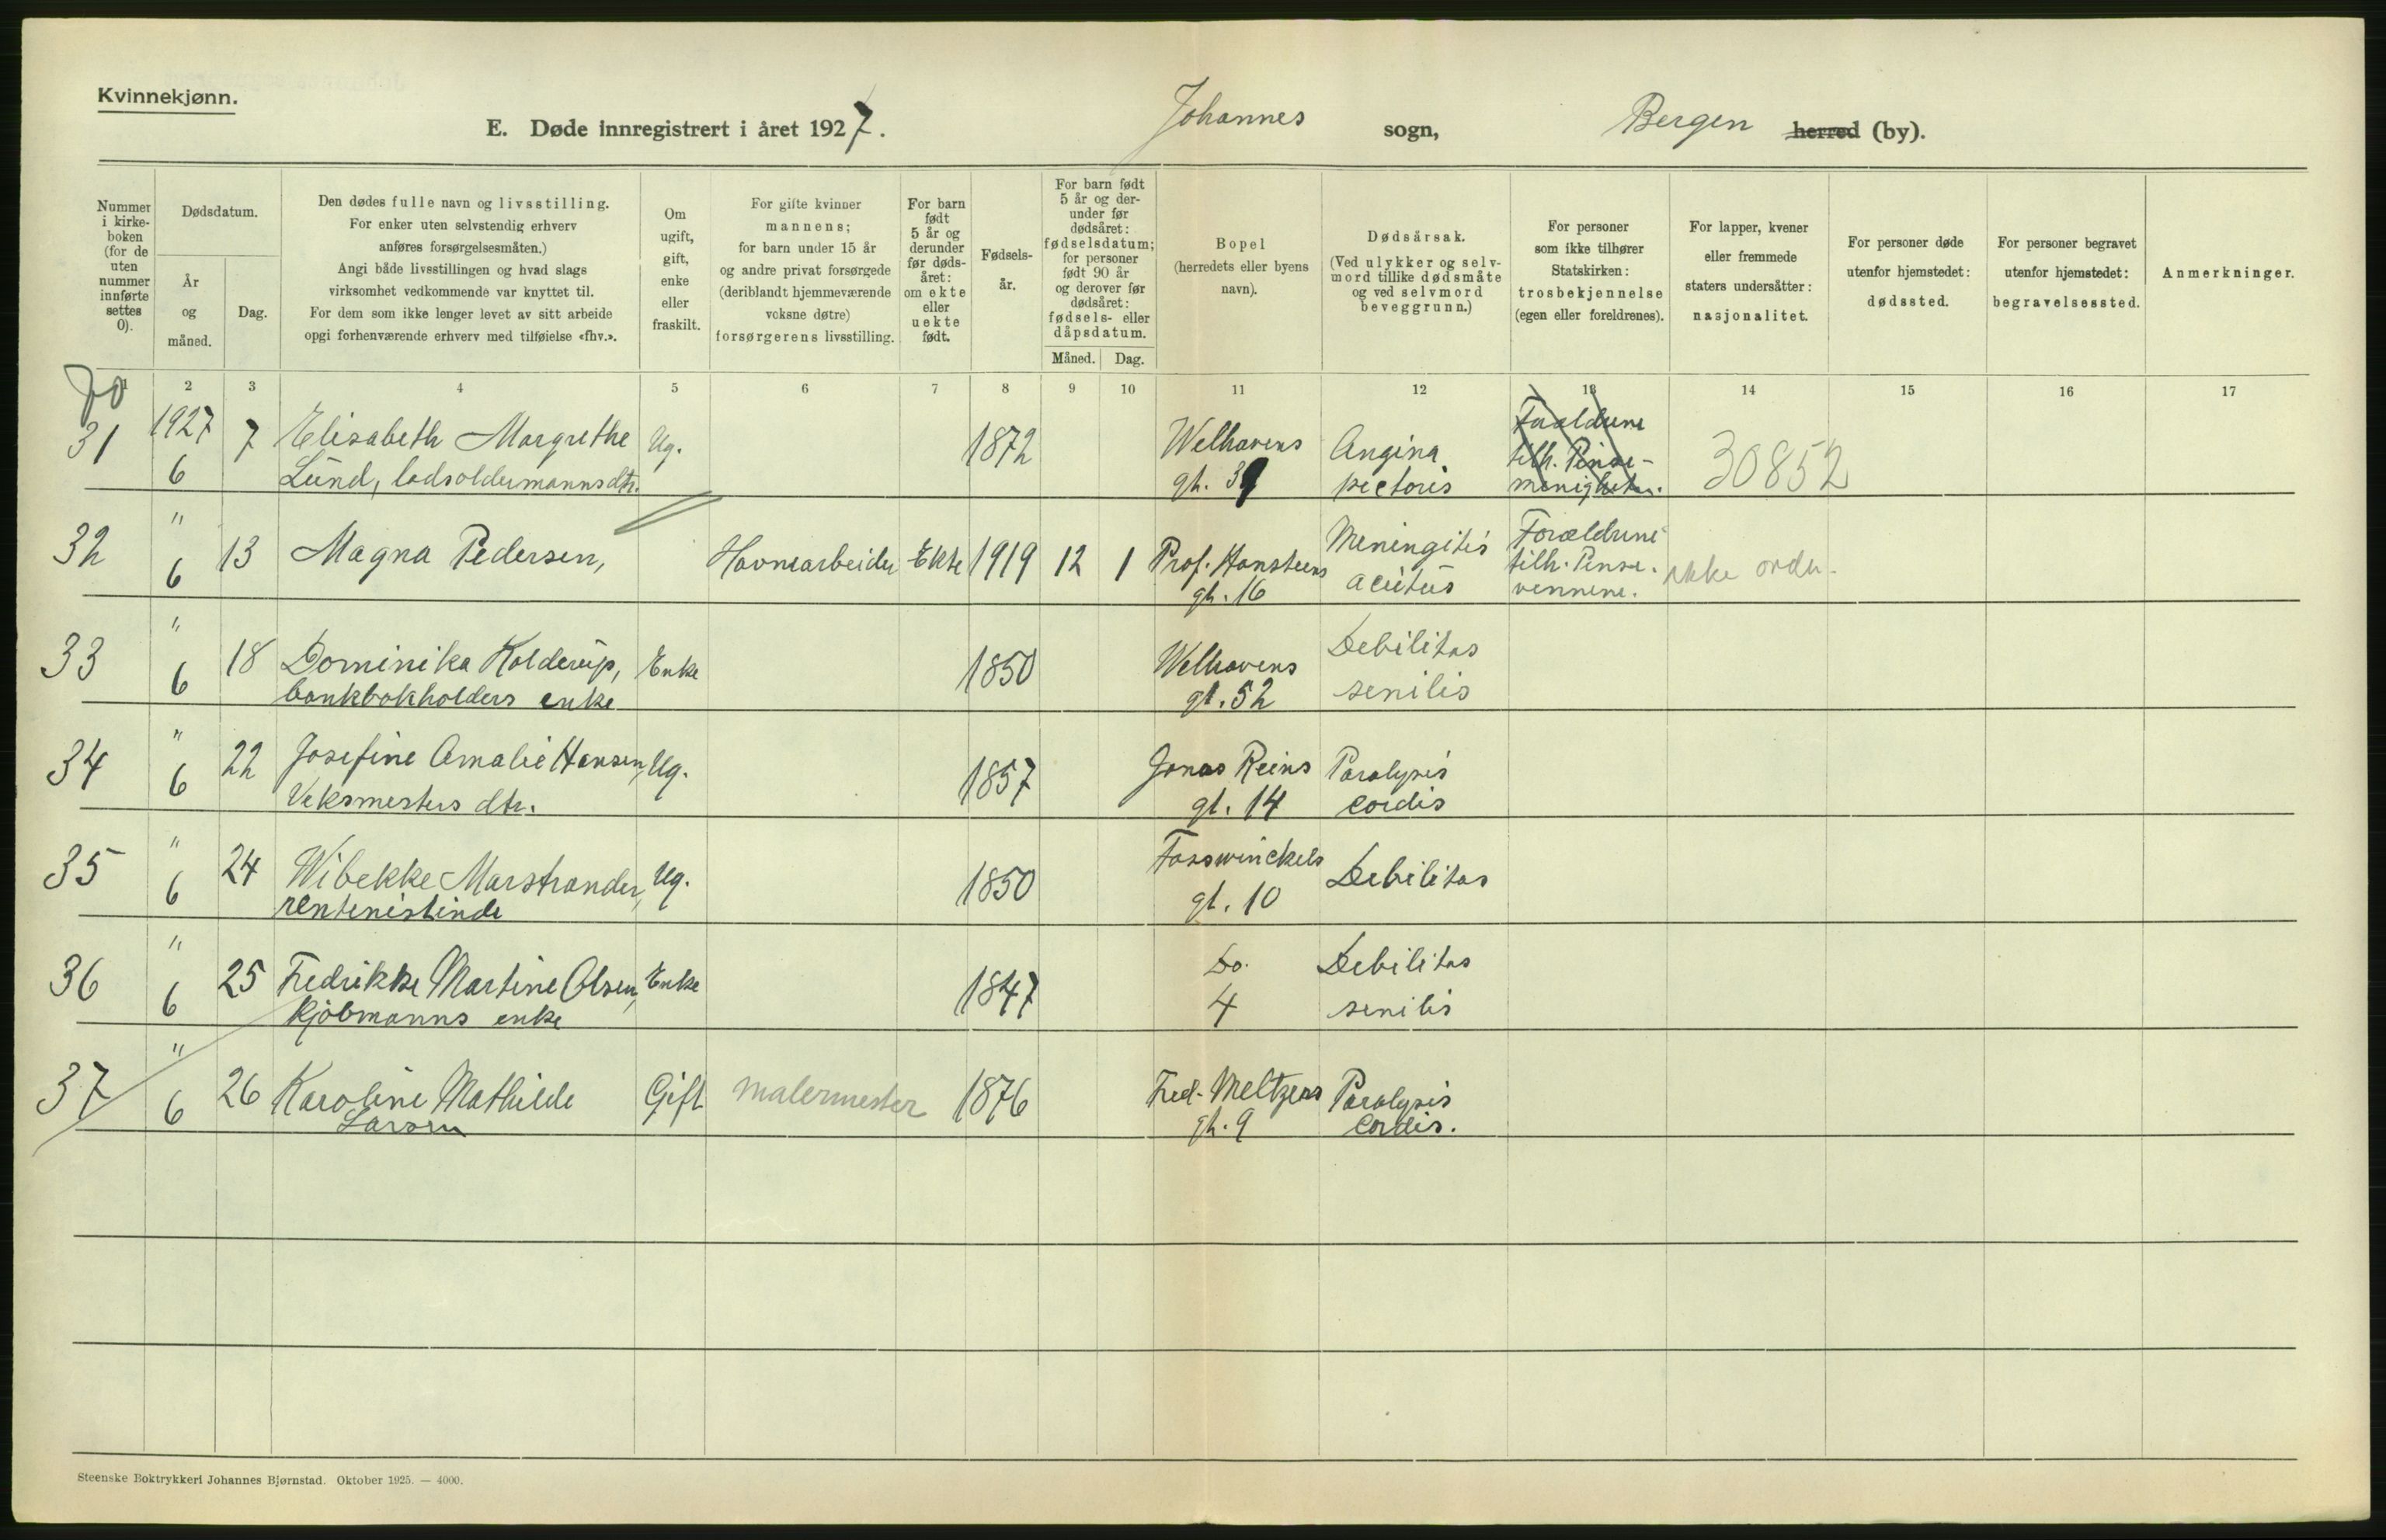 Kvinnekjønn.
E. Døde innregistrert i året 1927. Johannes sogn, Bergen herred (by).
Nummer i kirke-boken (for de uten nummer innførte settes 0).
Dødsdatum.
År og måned.
Dag.
Den dødes fulle navn og livsstilling.
For enker uten selvstendig erhverv
anføres forsørgelsesmåten.)
Angi både livsstillingen og hvad slags
virksomhet vedkommende var knyttet til.
For dem som ikke lenger levet av sitt arbeide
opgi forhenværende erhverv med tilføielse «fhv.».
Om ugift, gift, enke eller fraskilt.
For gifte kvinner
mannens;
for barn under 15 år
og andre privat forsørgede
(deriblandt hjemmeværende
voksne døtre)
forsørgerens livsstilling.
For barn født 5 år og derunder før døds-året: om ekte eller uekte født.
Fødsels-år.
For barn født 5 år og der-under før dødsåret: fødselsdatum; for personer født 90 år og derover før dødsåret: fødsels- eller dåpsdatum.
Måned. Dag.
Bopel
(herredets eller byens
navn).
Dødsårsak.
(Ved ulykker og selv-
mord tillike dødsmåte
og ved selvmord
beveggrunn.)
For personer
som ikke tilhører
Statskirken:
trosbekjennelse
(egen eller foreldrenes).
For lapper, kvener
eller fremmede
staters undersåtter:
nasjonalitet.
For personer døde
utenfor hjemstedet:
dødssted.
For personer begravet
utenfor hjemstedet:
begravelsessted.
Anmerkninger.
1 2 3 4 5 6 7 8 9 10 11 12 13 14 15 16 17
31 1927 6 7 Elisabeth Margrethe Ug. 1872 Welhavens Angina Forældrene 30852
Lund, lodsoldermannsdtr. gt. 39 pectoris tilh. Pinse-
menigheten.
32 " 6 13 Magna Pedersen, Havnearbeider Ekte 1919 12 1 Prof. Hansteens Meningitis Forældrene ikke ordn.
gt. 16 acutus tilh. Pinse.
vennene.
33 " 6 18 Dominika Kolderup, Enke 1850 Welhavens Debilitas
bankbokholders enke gt. 52 senilis
34 " 6 22 Josefine Amalie Hansen, Ug. 1857 Jonas Reins Paralysis
Veksmesters dtr. gt. 14 cordis
35 " 6 24 Wibekke Marstrander, Ug. 1850 Fosswinckels Debilitas
rentenistinde gt. 10
36 " 6 25 Fredrikke Martine Olsen, Enke 1847 Do. Debilitas
Kjøbmanns enke 4 senilis
37 " 6 26 Karoline Mathilde Gift malermester 1876 Fred. Meltzers Paralysis
Larsen gt. 9 Cordis.
Steenske Boktrykkeri Johannes Bjørnstad. Oktober 1925. — 4000.